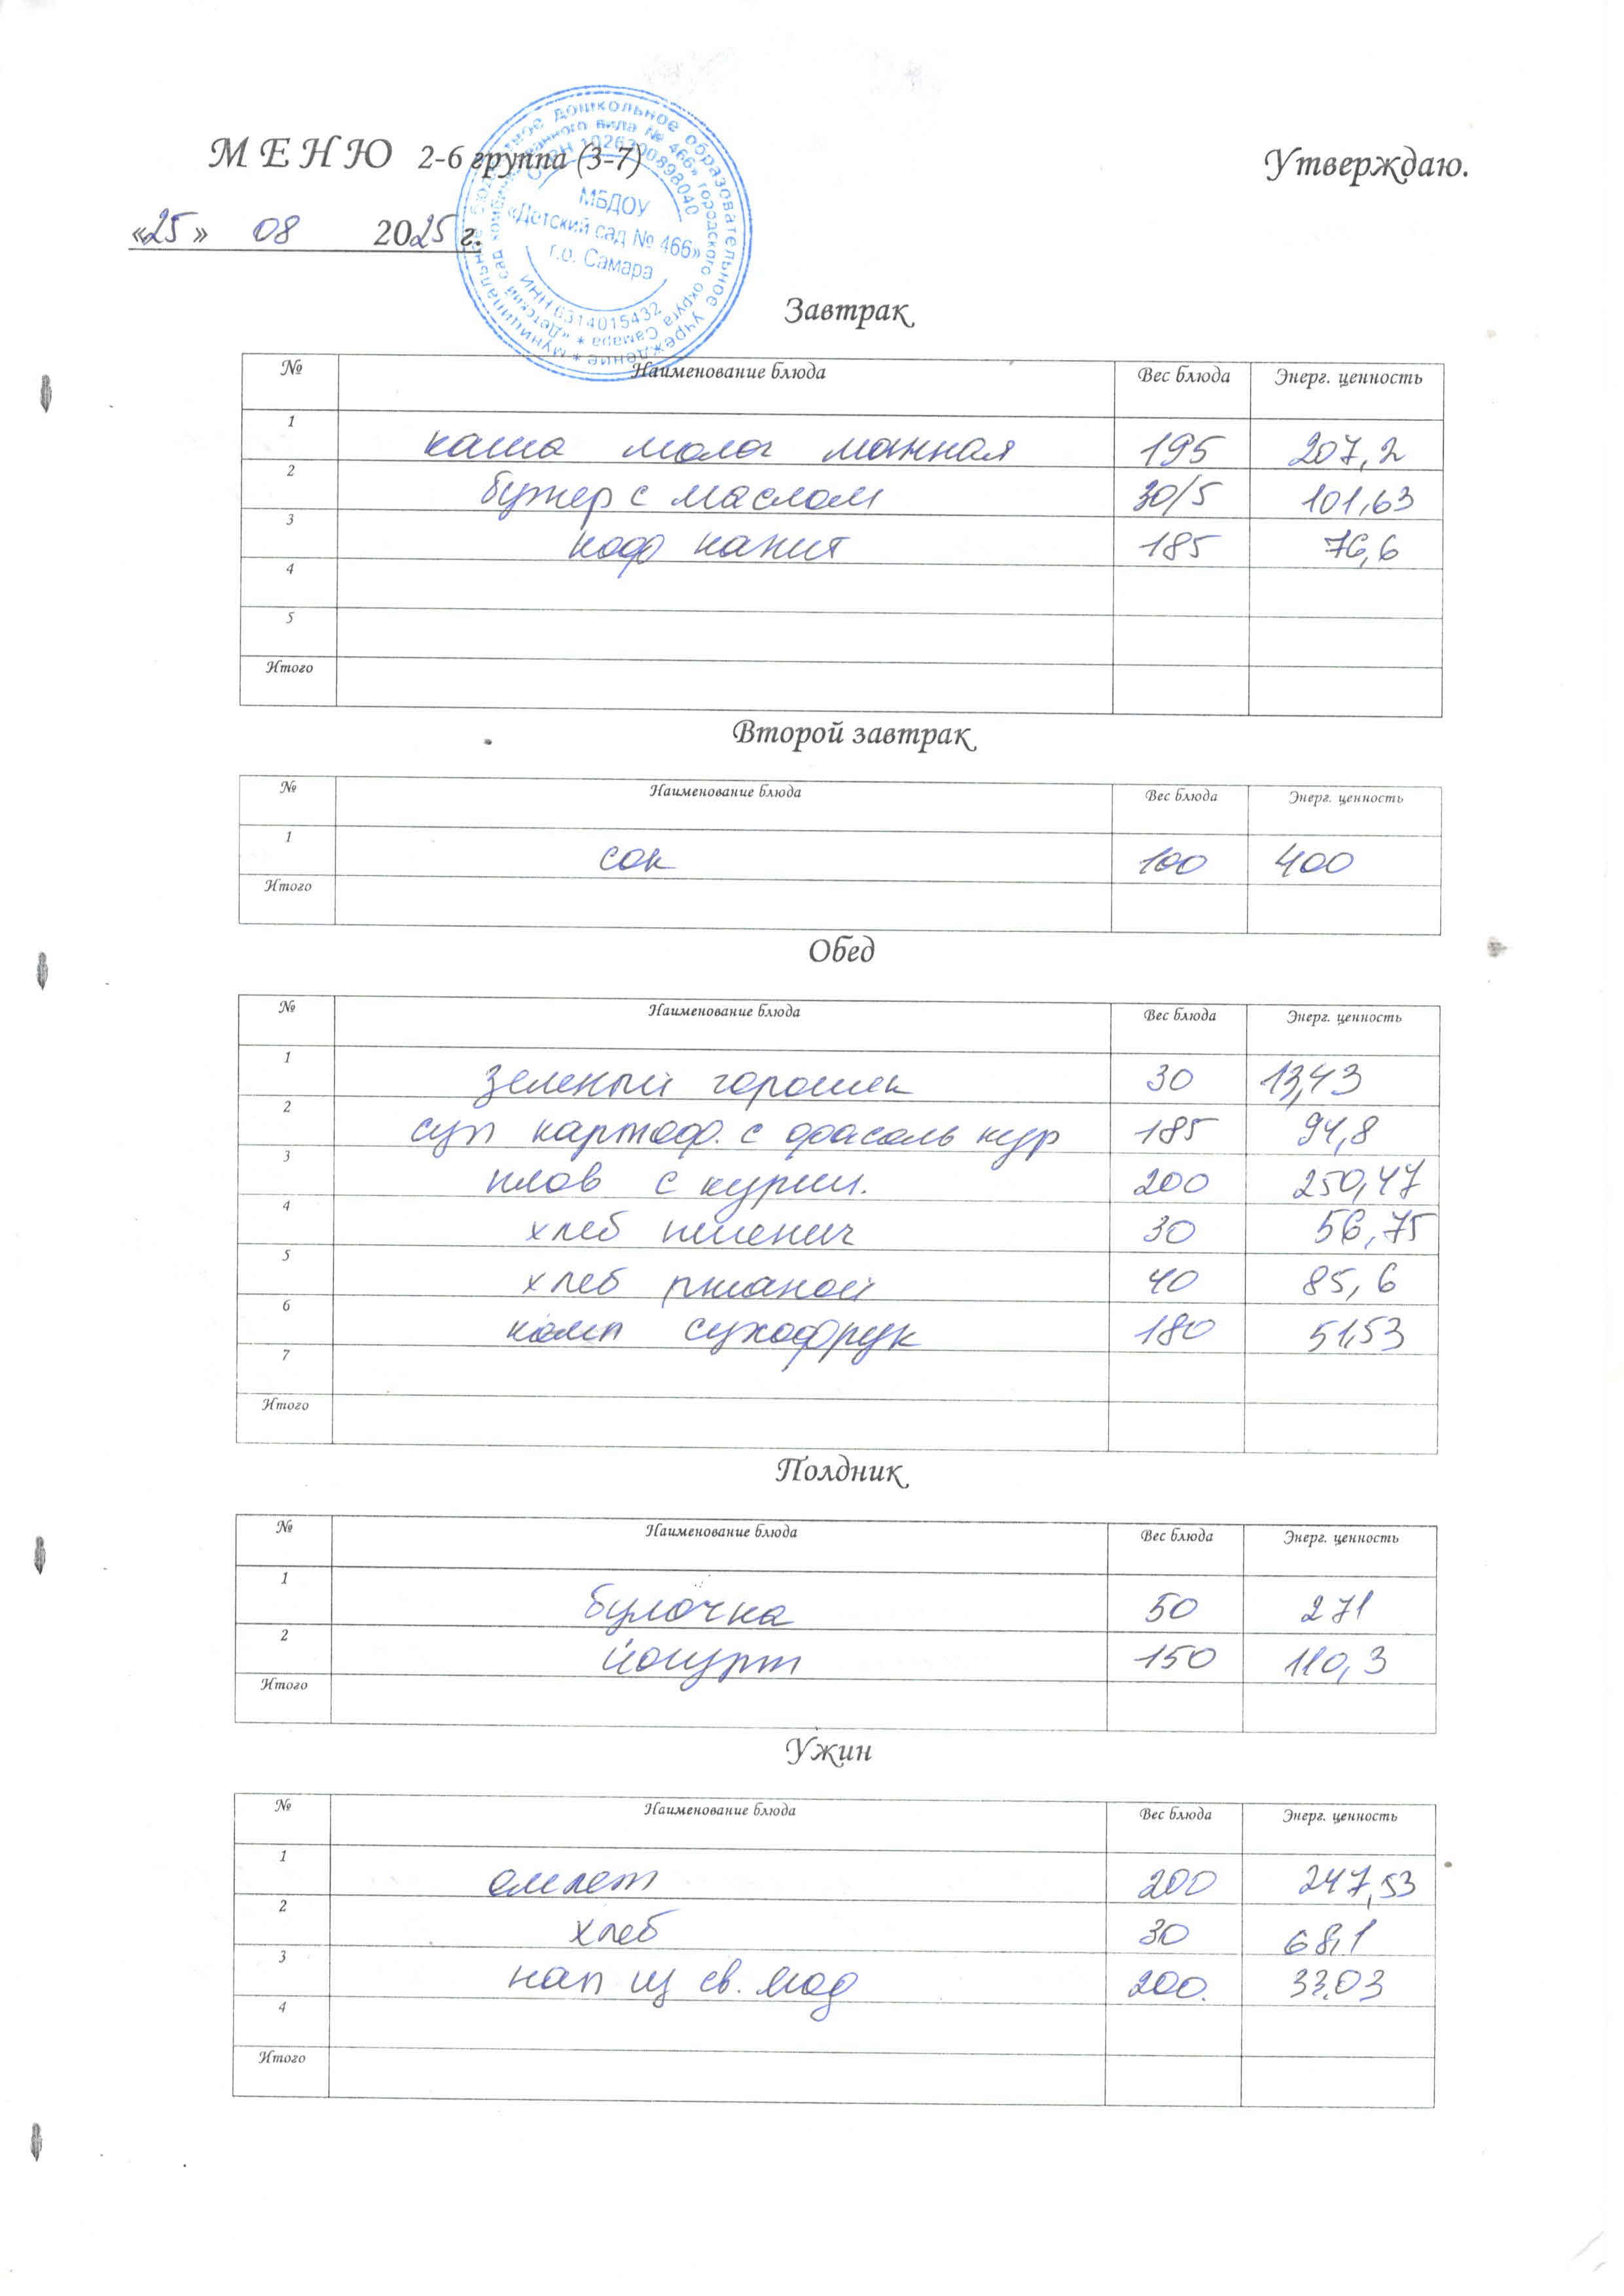 МЕНЮ 2-6 группа (3-7) Утверждаю.
«25» 08 2025 г.
муниципальное бюджетное дошкольное образовательное учреждение
«Детский сад комбинированного вида № 466» городского округа Самара
ОГРН 1026300898040
МБДОУ
«Детский сад № 466»
г.о. Самара
ИНН 6314015432
Завтрак
№ Наименование блюда Вес блюда Энерг. ценность
1 каша молоч манная 195 207,2
2 бутер с маслом 30/5 101,63
3 коф напит 185 76,6
4
5
Итого
Второй завтрак
№ Наименование блюда Вес блюда Энерг. ценность
1 сок 100 400
Итого
Обед
№ Наименование блюда Вес блюда Энерг. ценность
1 зеленый горошек 30 13,43
2 суп картоф. с фасоль кур 185 94,8
3 плов с куриц. 200 250,47
4 хлеб пшенич 30 56,75
5 хлеб ржаной 40 85,6
6 комп сухофрук 180 51,53
7
Итого
Полдник
№ Наименование блюда Вес блюда Энерг. ценность
1 булочка 50 271
2 йогурт 150 110,3
Итого
Ужин
№ Наименование блюда Вес блюда Энерг. ценность
1 омлет 200 247,53
2 хлеб 30 68,1
3 нап из св. яод 200. 33,03
4
Итого